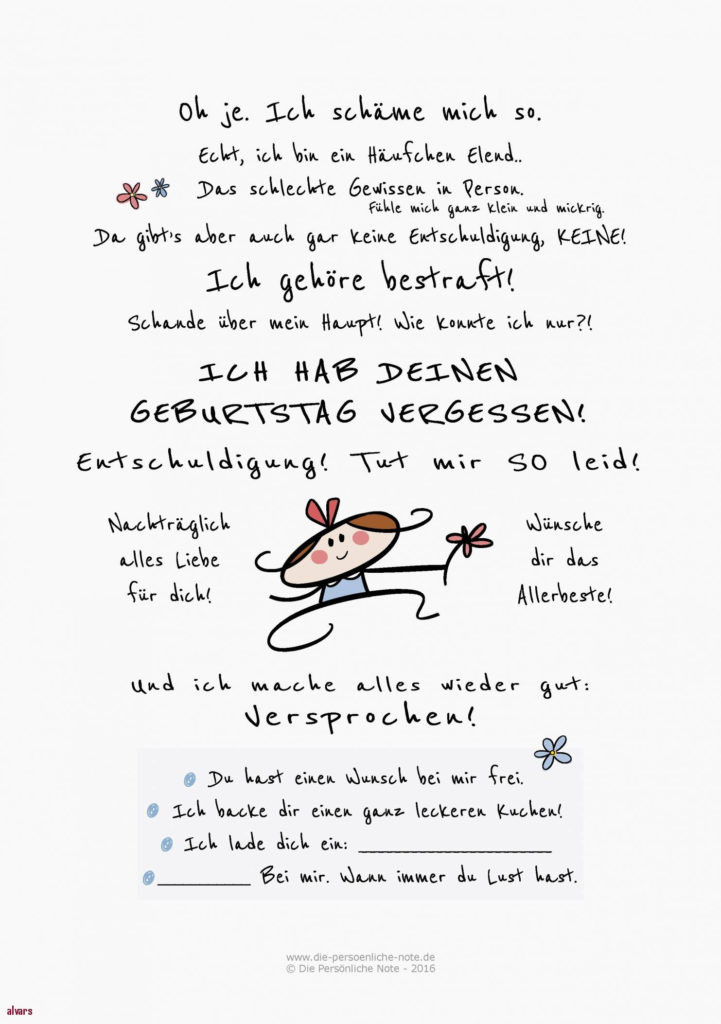 Oh je. Ich schäme mich so.
Echt, ich bin ein Häufchen Elend..
Das schlechte Gewissen in Person.
Fühle mich ganz klein und mickrig.
Da gibt's aber auch gar keine Entschuldigung, KEINE!
Ich gehöre bestraft!
Schande über mein Haupt! Wie konnte ich nur?!
ICH HAB DEINEN
GEBURTSTAG VERGESSEN!
Entschuldigung! Tut mir SO leid!
Nachträglich
alles Liebe
für dich!
Wünsche
dir das
Allerbeste!
Und ich mache alles wieder gut:
Versprochen!
Du hast einen Wunsch bei mir frei.
Ich backe dir einen ganz leckeren Kuchen!
Ich lade dich ein: ____________________
__________ Bei mir. Wann immer du Lust hast.
www.die-persoenliche-note.de
© Die Persönliche Note - 2016
alvars